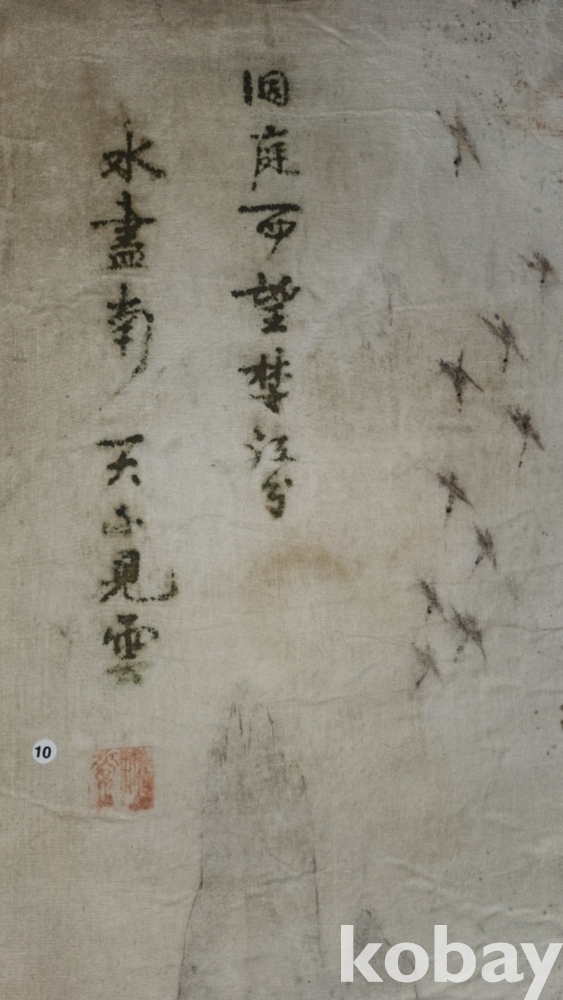 洞庭西望楚江分
水盡南天不見雲
10
kobay